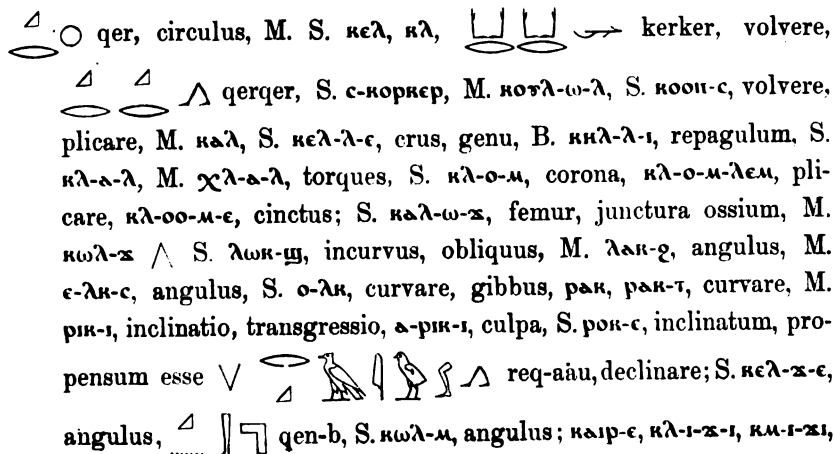 𓈎𓂋𓏴 qer, circulus, M. S. ⲕⲉⲗ, ⲕⲗ, kerker, volvere,
qerqer, S. ⲥ-ⲕⲟⲣⲕⲉⲣ, M. ⲕⲟⲩⲗ-ⲱ-ⲗ, S. ⲕⲟⲟⲡ-ⲥ, volvere,
plicare, M. ⲕⲁⲗ, S. ⲕⲉⲗ-ⲗ-ⲉ, crus, genu, B. ⲕⲏⲗ-ⲗ-ⲓ, repagulum, S.
ⲕⲗ-ⲁ-ⲗ, M. ⲭⲗ-ⲁ-ⲗ, torques, S. ⲕⲗ-ⲟ-ⲙ, corona, ⲕⲗ-ⲟ-ⲙ-ⲗⲉⲙ, pli-
care, ⲕⲗ-ⲟⲟ-ⲙ-ⲉ, cinctus; S. ⲕⲁⲗ-ⲱ-ϫ, femur, junctura ossium, M.
ⲕⲱⲗ-ϫ /\ S. ⲗⲱⲕ-ϣ, incurvus, obliquus, M. ⲗⲁⲕ-ϩ, angulus, M.
ⲉ-ⲗⲕ-ⲥ, angulus, S. ⲟ-ⲗⲕ, curvare, gibbus, ⲣⲁⲕ, ⲣⲁⲕ-ⲧ, curvare, M.
ⲣⲓⲕ-ⲓ, inclinatio, transgressio, ⲁ-ⲣⲓⲕ-ⲓ, culpa, S. ⲣⲟⲕ-ⲉ, inclinatum, pro-
pensum esse \/ req-aȧu, declinare; S. ⲕⲉⲗ-ϫ-ⲉ,
angulus, qen-b, S. ⲕⲱⲗ-ⲙ, angulus; ⲕⲁⲓⲣ-ⲉ, ⲕⲗ-ⲓ-ϫ-ⲓ, ⲕⲙ-ⲓ-ϫⲓ,